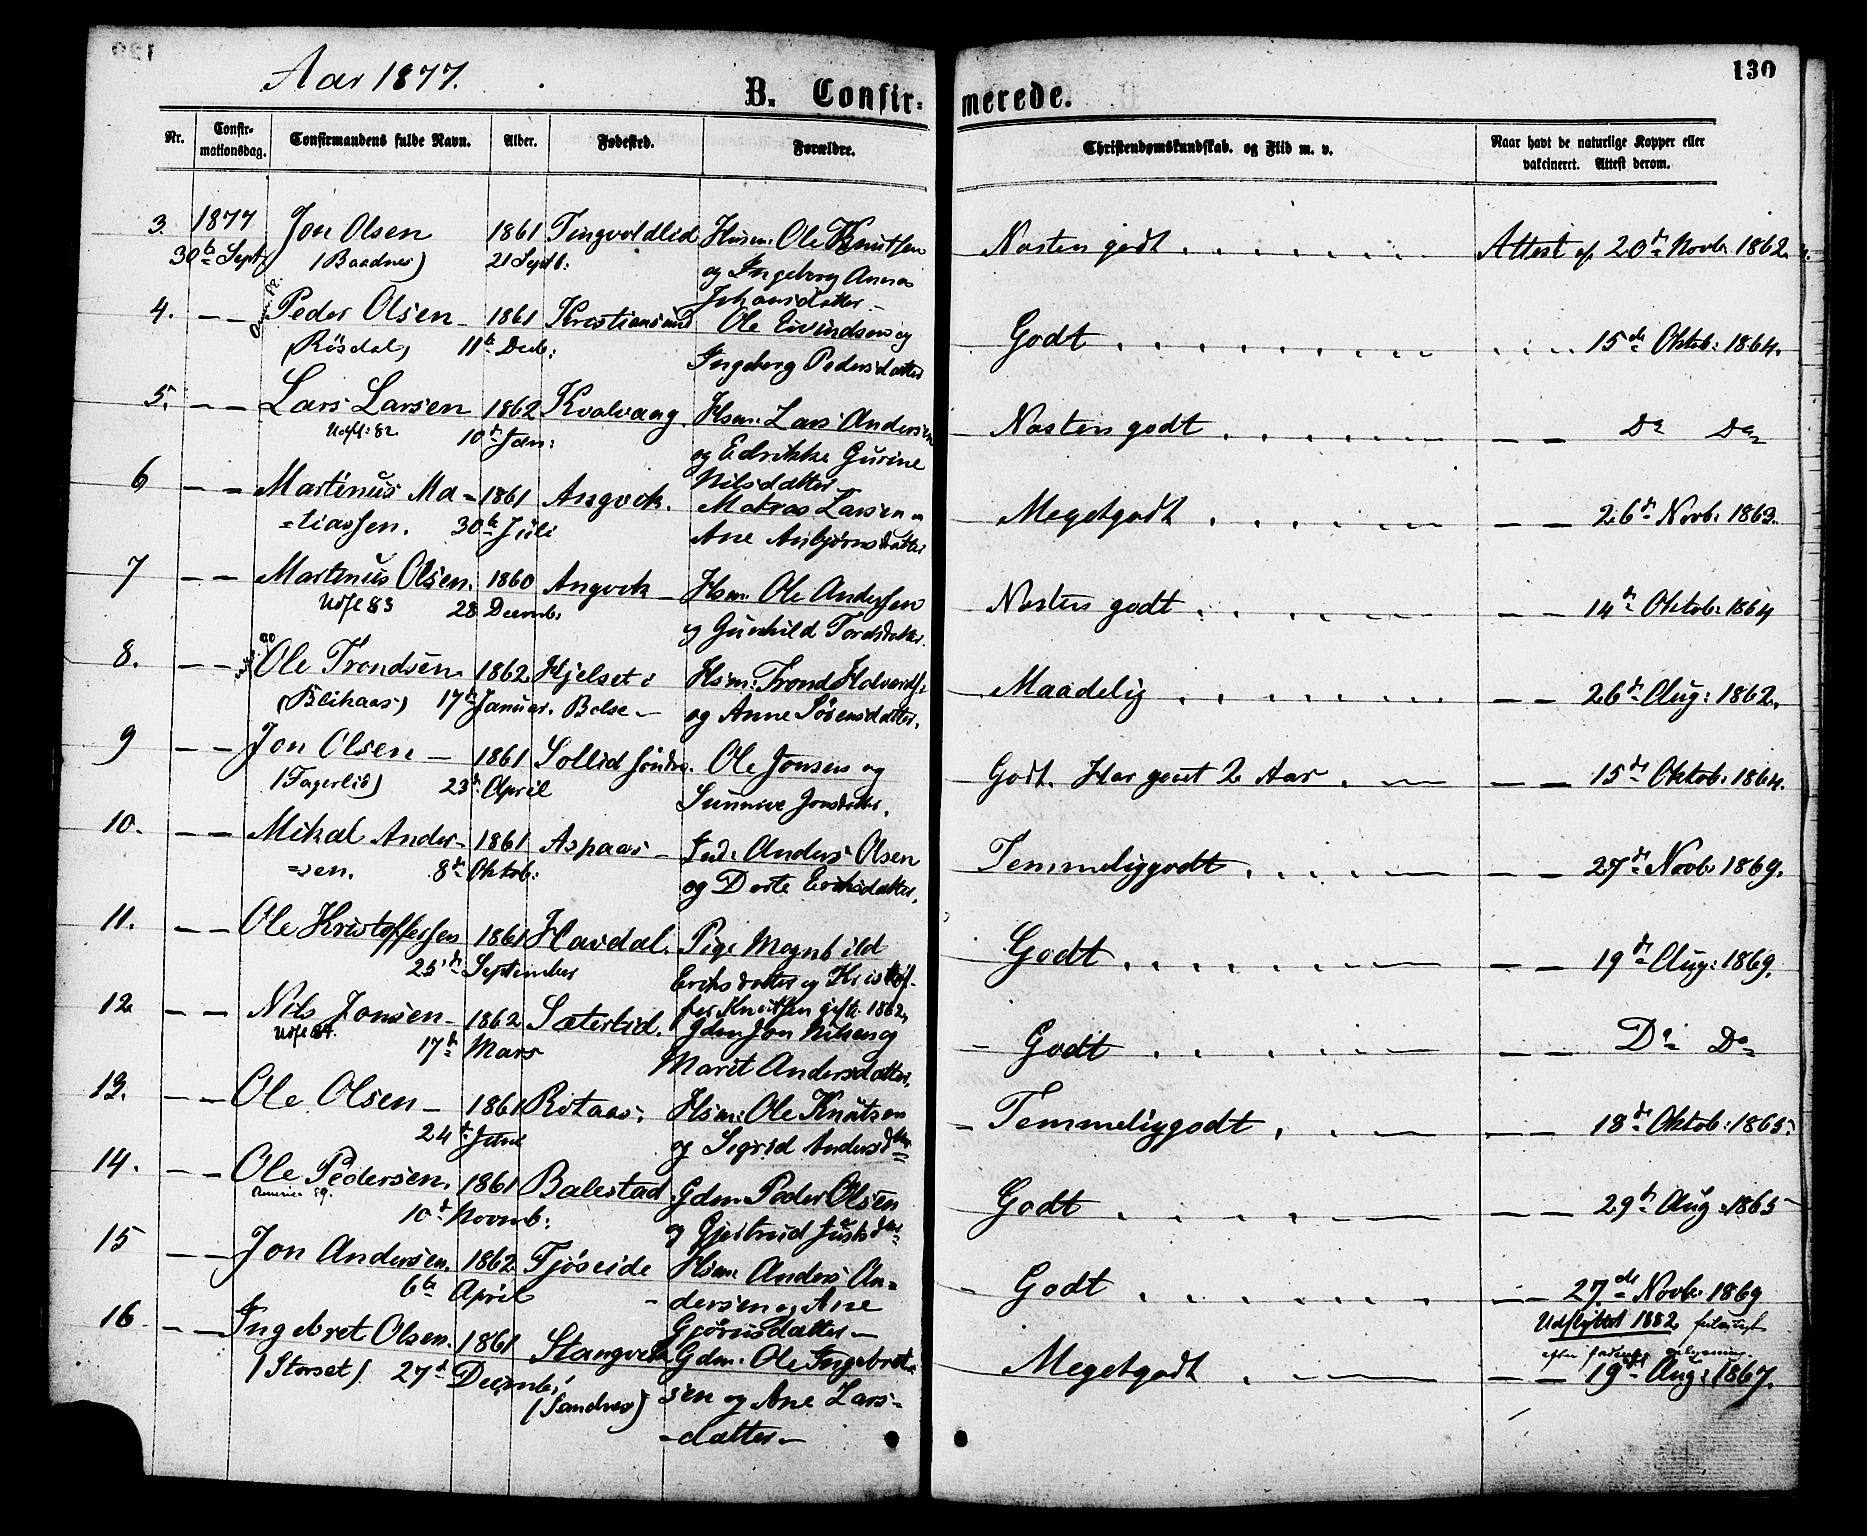 130
Aar 1877.
B. Confir- merede.
Nr. Confirmationsdag. Confirmandens fulde Navn. Alder. Fødested. Forældre. Christendomskundskab. og Flid m. v. Naar havt de naturlige Kopper eller vakcineret. Attest derom.
3. 1877 Jon Olsen 1861 Tingvoldlid Husm: Ole Knutsen Næsten godt Attest af 20de Novb. 1862.
30te Septr (Baadnes) 21 Septb: og Ingeborg Anna
Johansdatter
4. Peder Olsen 1861 Kristiansund Ole Eivindsen og Godt 15de Oktob: 1864.
(Rösdal) 11te Decb: Ingeborg Pedersdatter
5. Lars Larsen 1862 Kvalvaag Hsm: Lars Andersen Næsten godt Do Do
Udfl: 82 10de Jan: og Edrikke Gurine
Nilsdatter
6 Martinus Ma- 1861 Angvik. Matias Larsen Megetgodt 26de Novb: 1863.
=tiassen. 30te Juli Ane Asbjørnsdatter
7 Martinus Olsen. 1860 Angvik Hsm: Ole Anderssen Næsten godt 14de Oktob: 1864
Udfl 83 28 Decemb: og Gunhild Tordsdatter
8. Ole Trondsen 1862 Hjelset i Hsm: Trond Halvards: Maadelig 26de Aug: 1862.
(Blikaas) 17de Januar. Bolsø og Anne Sørensdatter.
9 Jon Olsen 1861 Sollid söndre. Ole Jonsen og Godt. Har gaaet 2 Aar 15de Oktob: 1864.
(Fagerlid) 23de April Sunnive Jonsdatter.
10. Mikal Ander- 1861 Aspaas Ind: Anders Olsen Temmeliggodt 27de Novb: 1869.
=sen. 8de Oktob: og Dorte Eriksdatter.
11. Ole Kristoffersen 1861 Havdal. Pige Magnhild Godt 19de Aug: 1869.
25de September Eriksdatter og Kristof-
fer Knutsen gift 1862.
12 Nils Jonsen 1862 Sæterlid. Gdm Jon Nilsen og Godt Do Do
Udfl 84. 17de Mars Marit Andersdatter.
13. Ole Olsen 1861 Rotaas. Hsm: Ole Knutsen Temmeliggodt 18de Oktob: 1865.
24de Juni og Sigrid Andersdtr
14. Ole Pedersen. 1861 Balestad Gdm: Peder Olsen Godt 29de Aug 1865
10de Novmb: og Gjertrud Justsdtr
15 Jon Andersen. 1862 Fjöseide Hsm: Anders An= Godt 27de Novb: 1869
6te April dersen og Ane Udflyttet 1882
Gjørusdatter
16 Ingebret Olsen. 1861 Stangvik Gdm: Ole Ingebret- Megetgodt 19de Aug: 1867.
(Storset) 27de Decemb: (Sandnes) sen og Ane Lars=
=datter